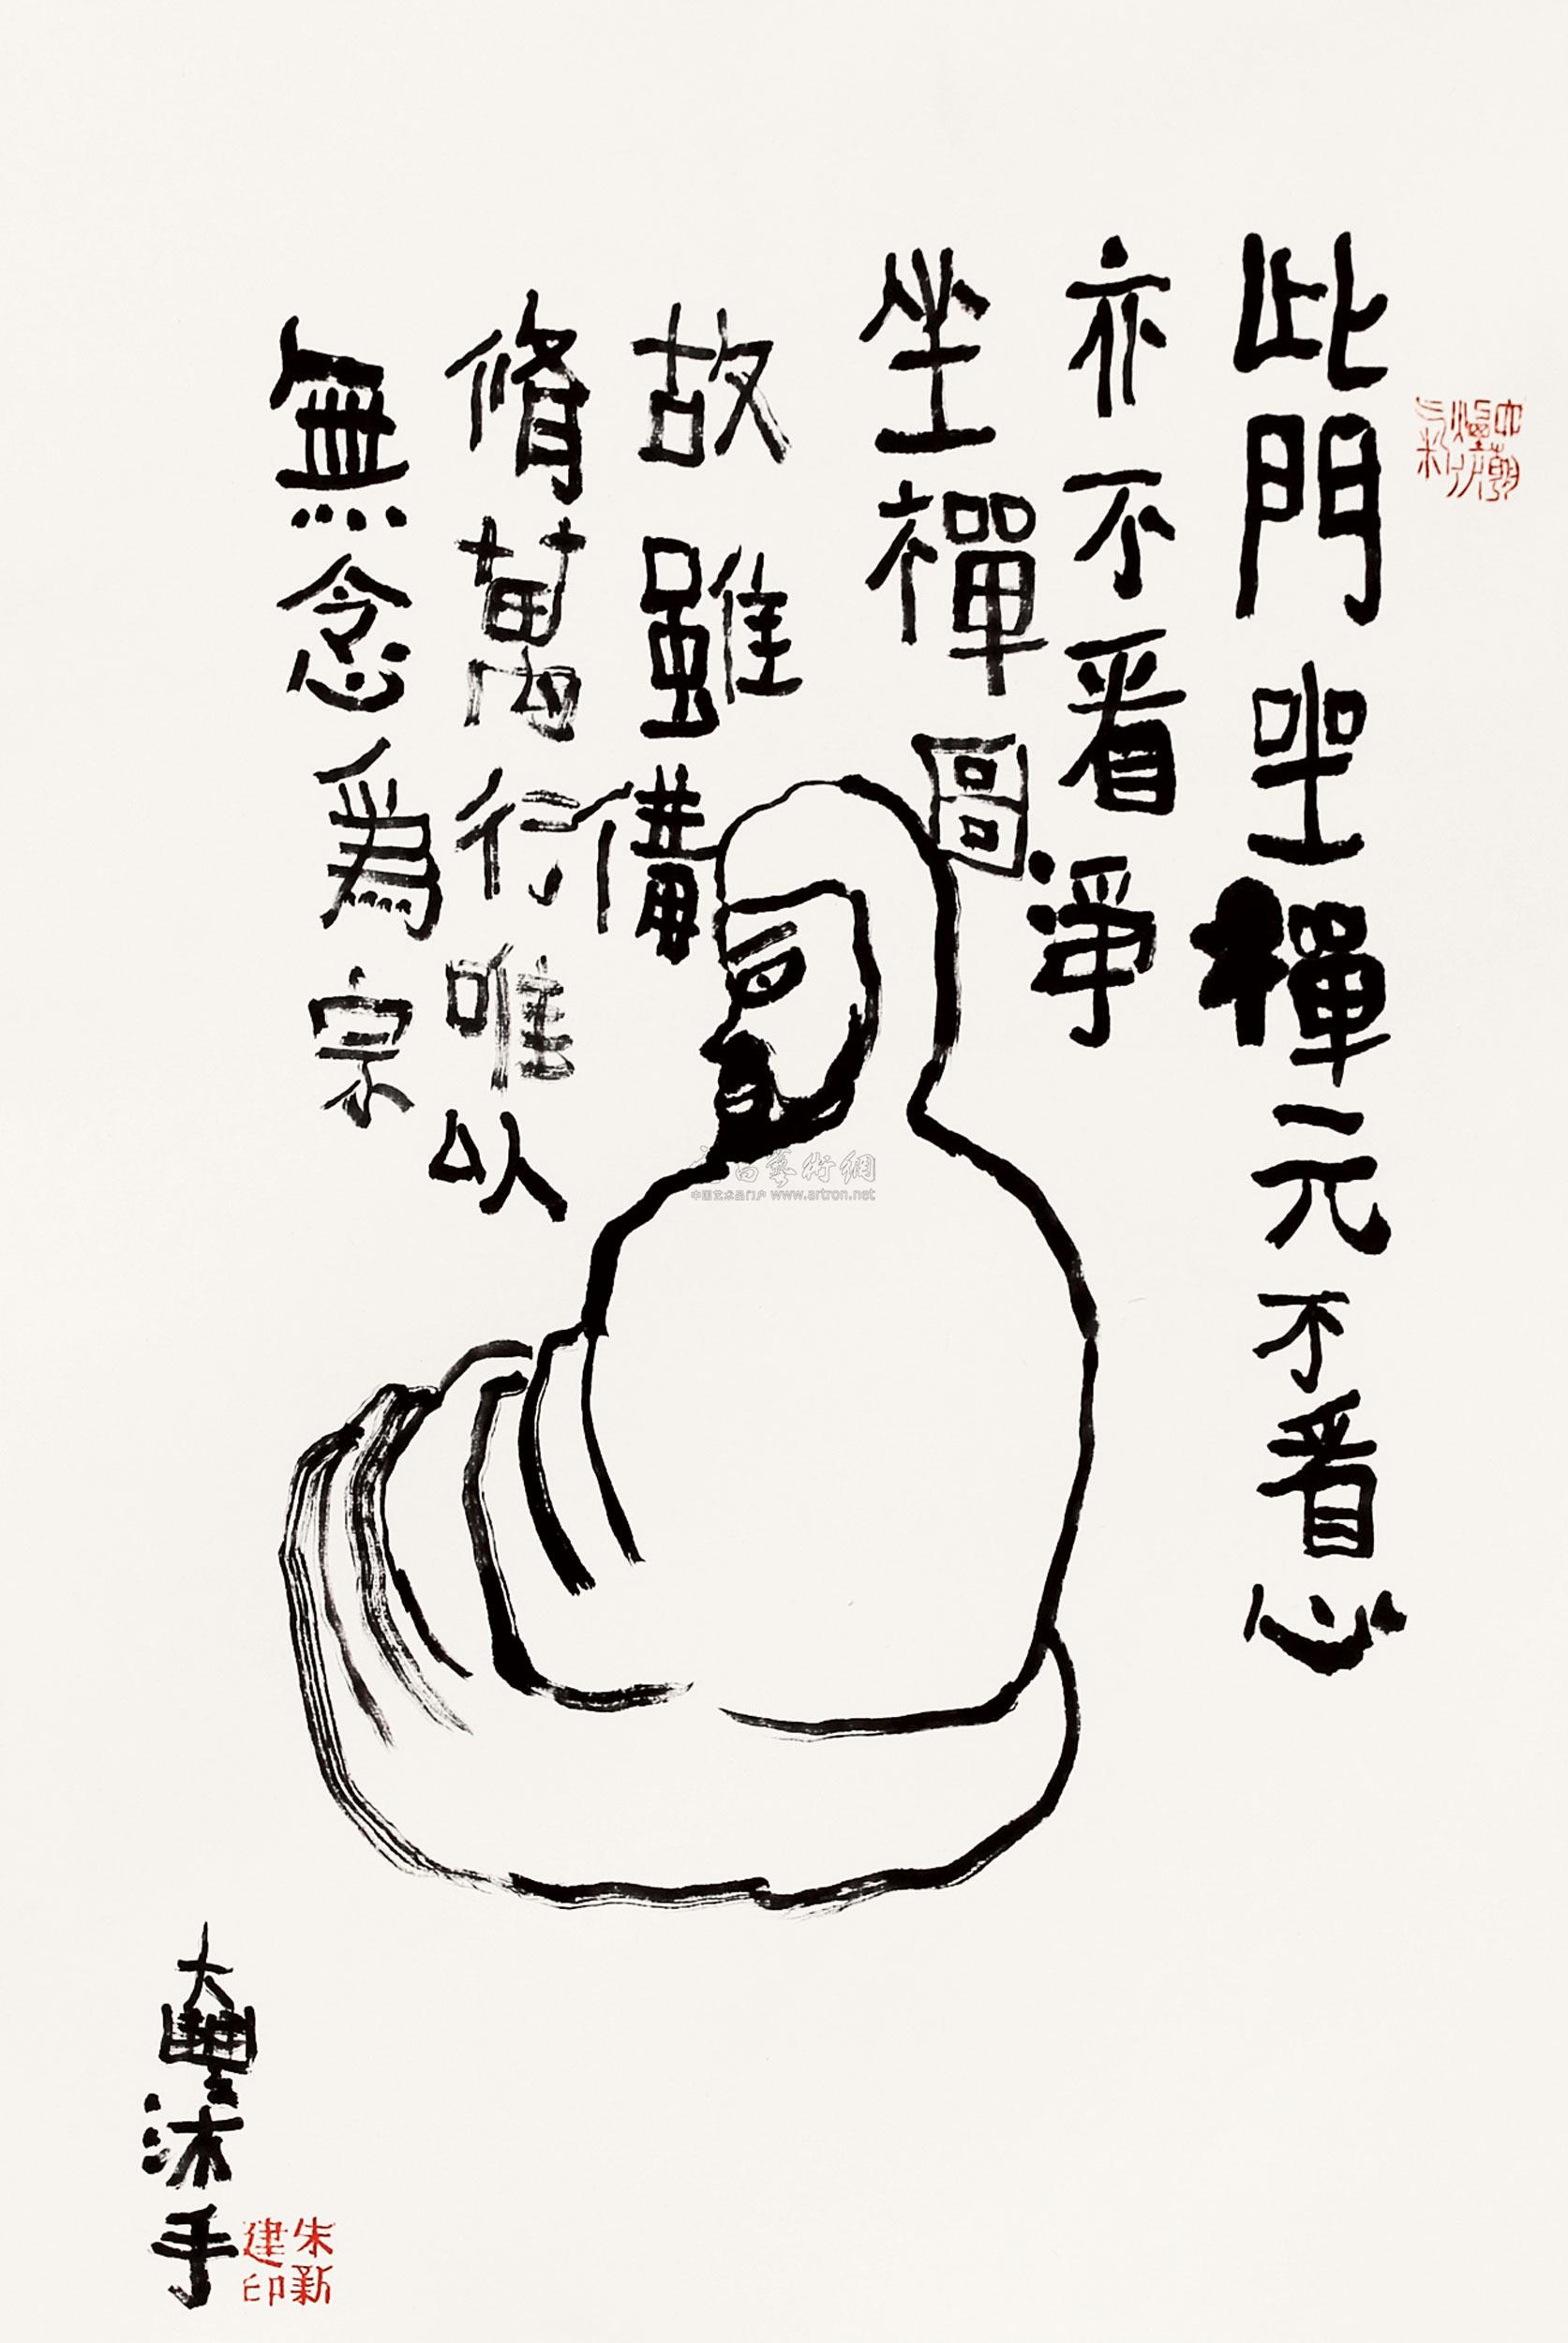 此門坐禪元不看心
亦不看淨
坐禪圖
故雖備
脩萬行唯以
無念為宗
大豐沐手
朱新建印
藝術網
中国艺术品门户 www.artron.net